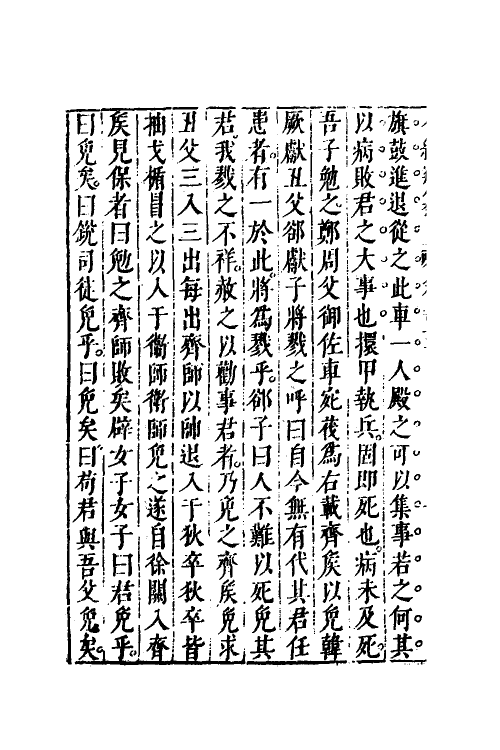 旗鼓進退從之此車一人殿之可以集事若之何其
以病敗君之大事也擐甲執兵固即死也病未及死
吾子勉之鄭周父御佐車宛茷爲右載齊矦以免韓
厥獻丑父郤獻子將戮之呼曰自今無有代其君任
患者有一於此將爲戮乎郤子曰人不難以死免其
君我戮之不祥赦之以勸事君者乃免之齊矦免求
丑父三入三出每出齊師以帥退入于狄卒狄卒皆
抽戈楯冒之以入于衞師衞師免之遂自徐關入齊
矦見保者曰勉之齊師敗矣辟女子女子曰君免乎
曰免矣曰銳司徒免乎曰免矣曰苟君與吾父免矣